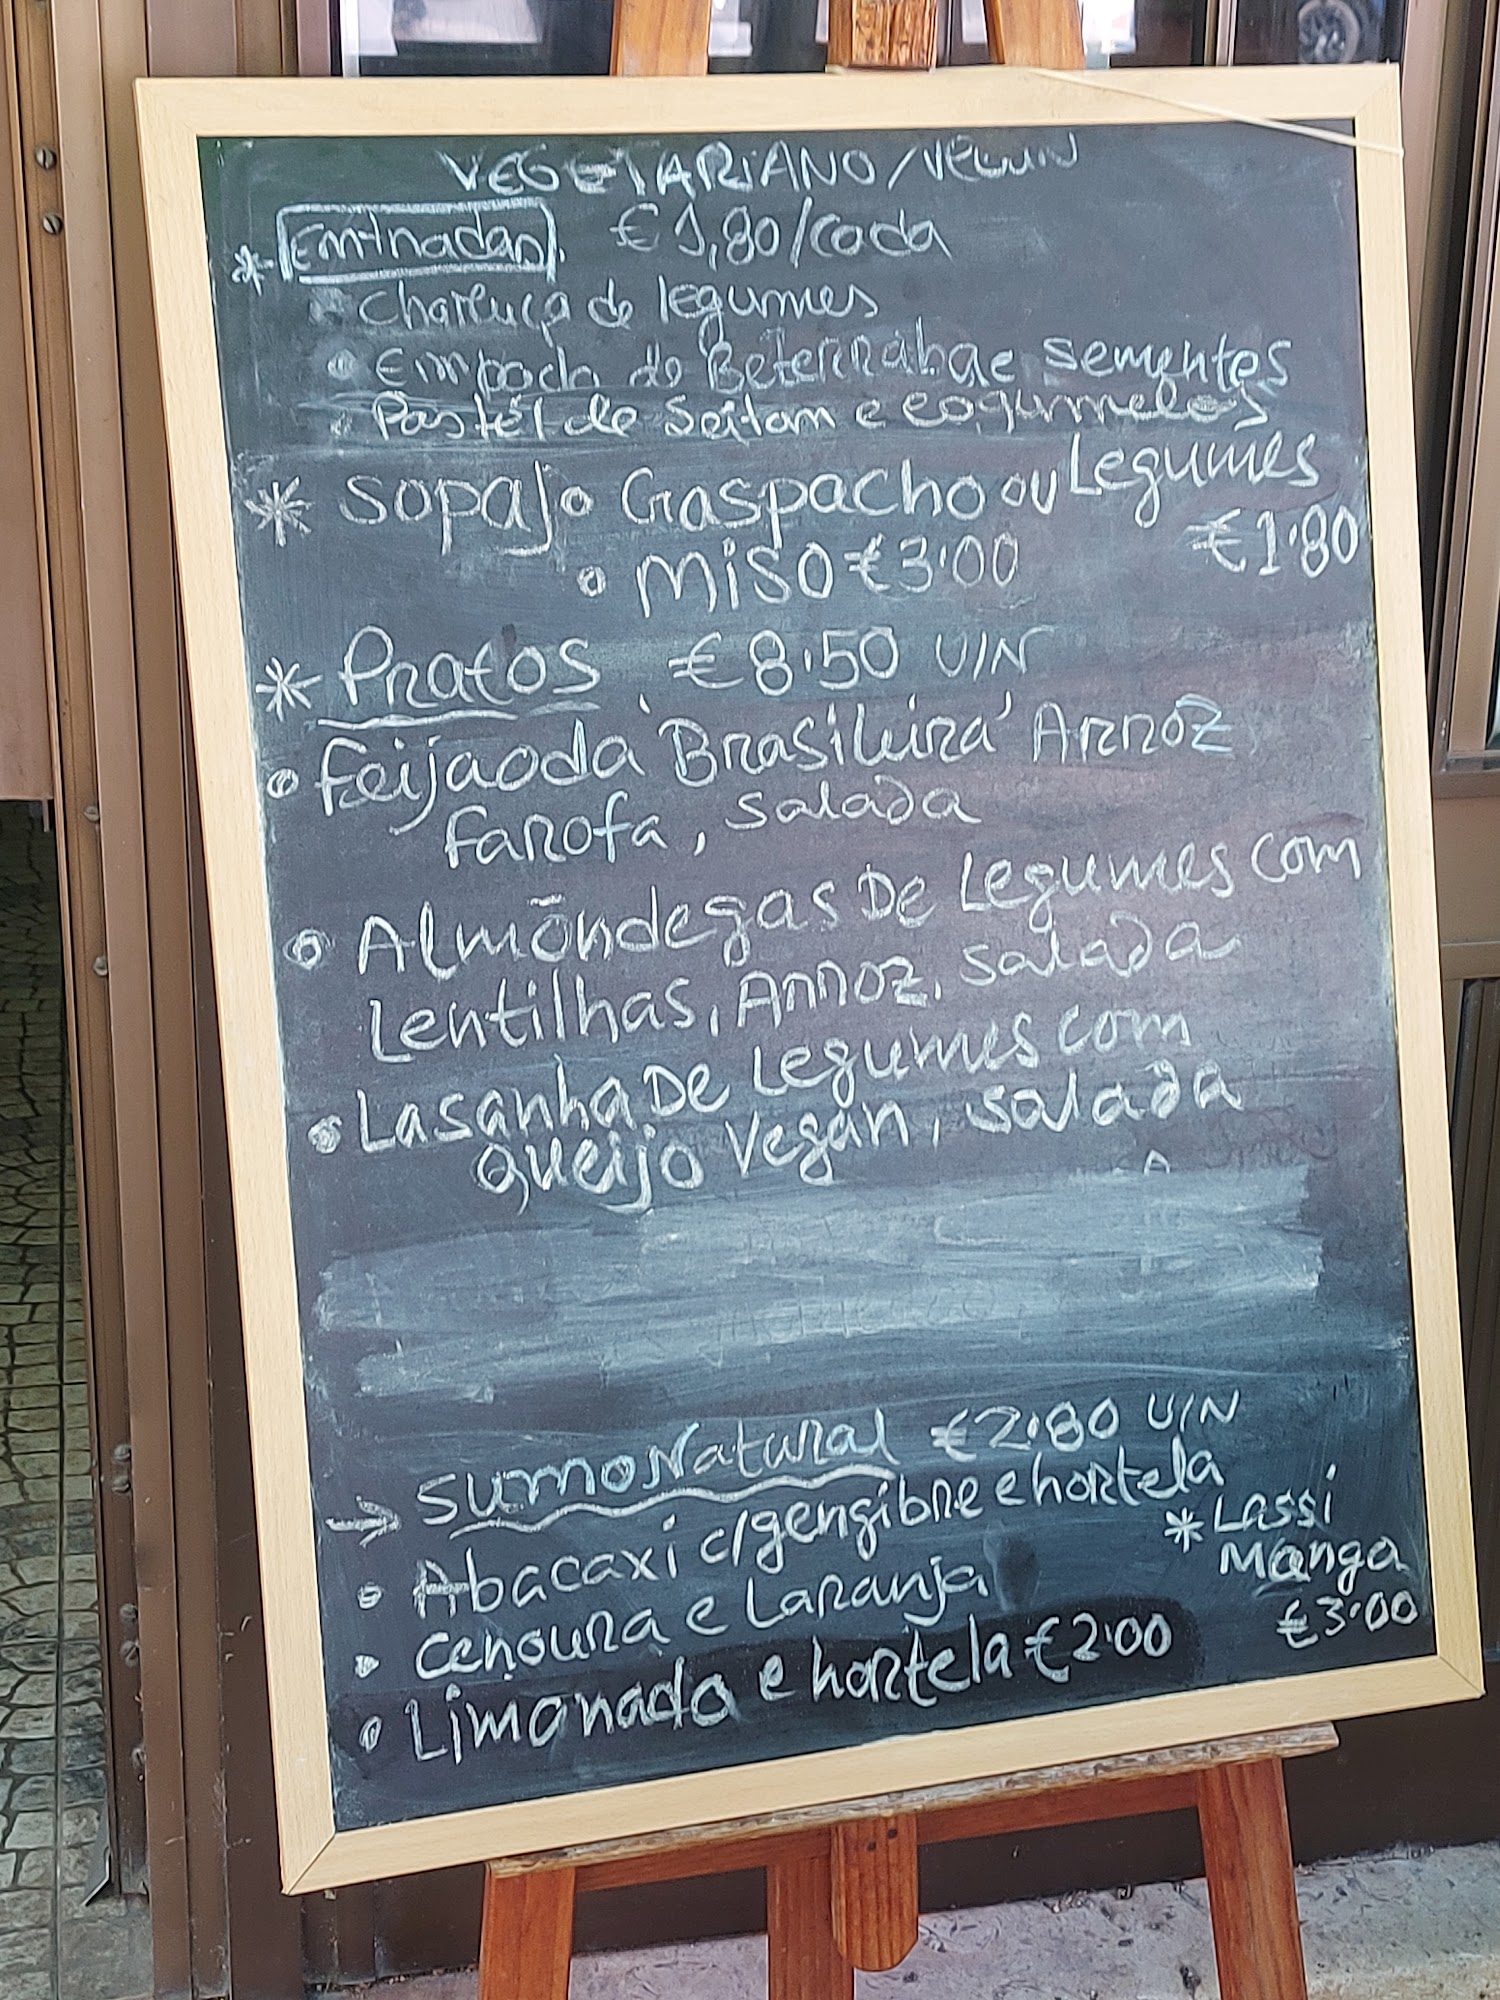 VEGETARIANO/VEGAN
* Entradas. €1,80/cada
• Chamuça de legumes
• Empada de Beterraba e sementes
• Pastél de Seitan e cogumelos
* SOPAS o Gaspacho ou Legumes
€1.80
o Miso €3.00
* Pratos, €8.50 U/N
o Feijaoda 'Brasileira' Arroz
Farofa, Salada
o Almõndegas De Legumes com
Lentilhas, Arroz, Salada
o Lasanha De Legumes com
queijo Vegan, Salada
→ Sumo Natural €2.80 U/N
o Abacaxi c/gengibre e hortela
• Cenoura e Laranja
o Limonada e hortela €2.00
* Lassi
Manga
€3.00